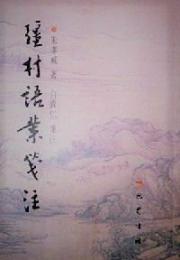 朱孝臧 著 白敦仁 箋注
彊村語業箋注
巴蜀書社